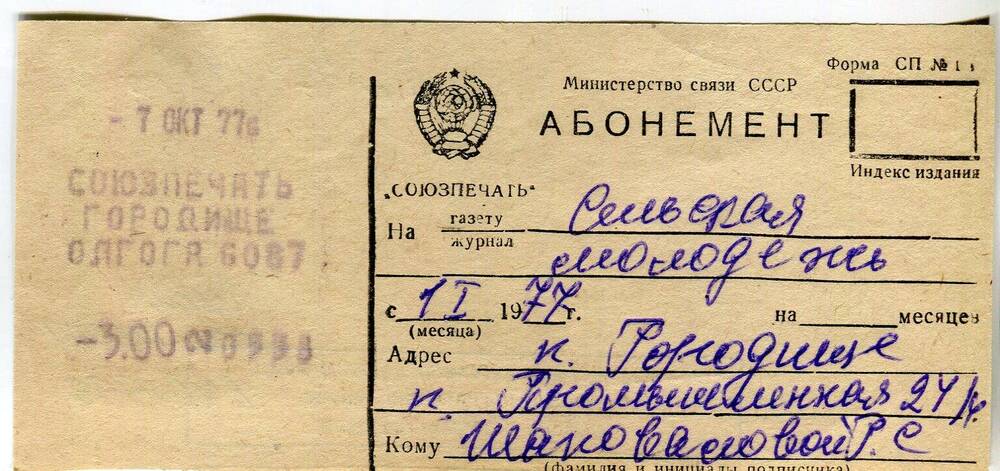 - 7 ОКТ 77г
СОЮЗПЕЧАТЬ
ГОРОДИЩЕ
ОЛГОГР 6087
-3.00
Форма СП № 1
Министерство связи СССР
АБОНЕМЕНТ
Индекс издания
„СОЮЗПЕЧАТЬ“
На газету
журнал
Сельская
молодежь
с 1 I 1977 г. на месяцев
(месяца)
Адрес п. Городище
Промышленная 24/
Кому Р. С
(фамилия и инициалы подписчика)